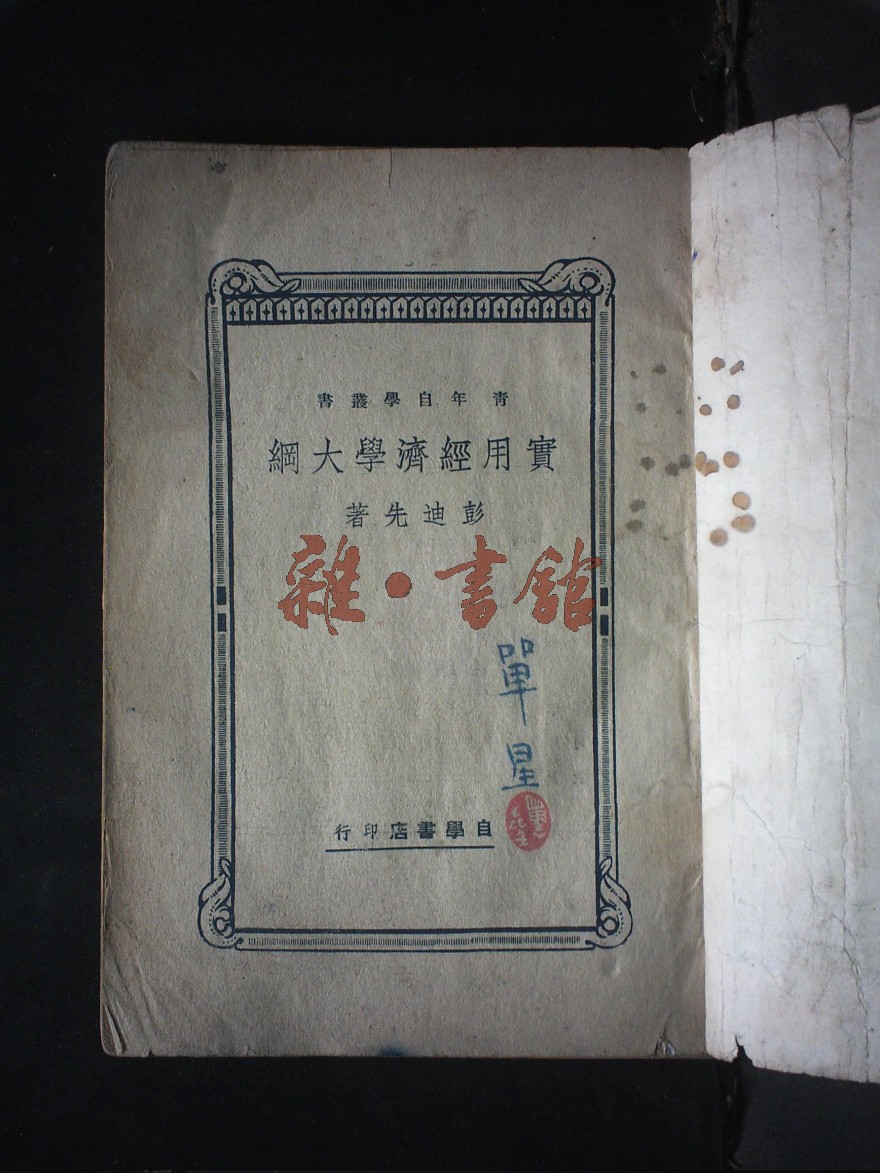 青年自學叢書
實用經濟學大綱
彭迪先著
雜·書館
單星
自學書店印行